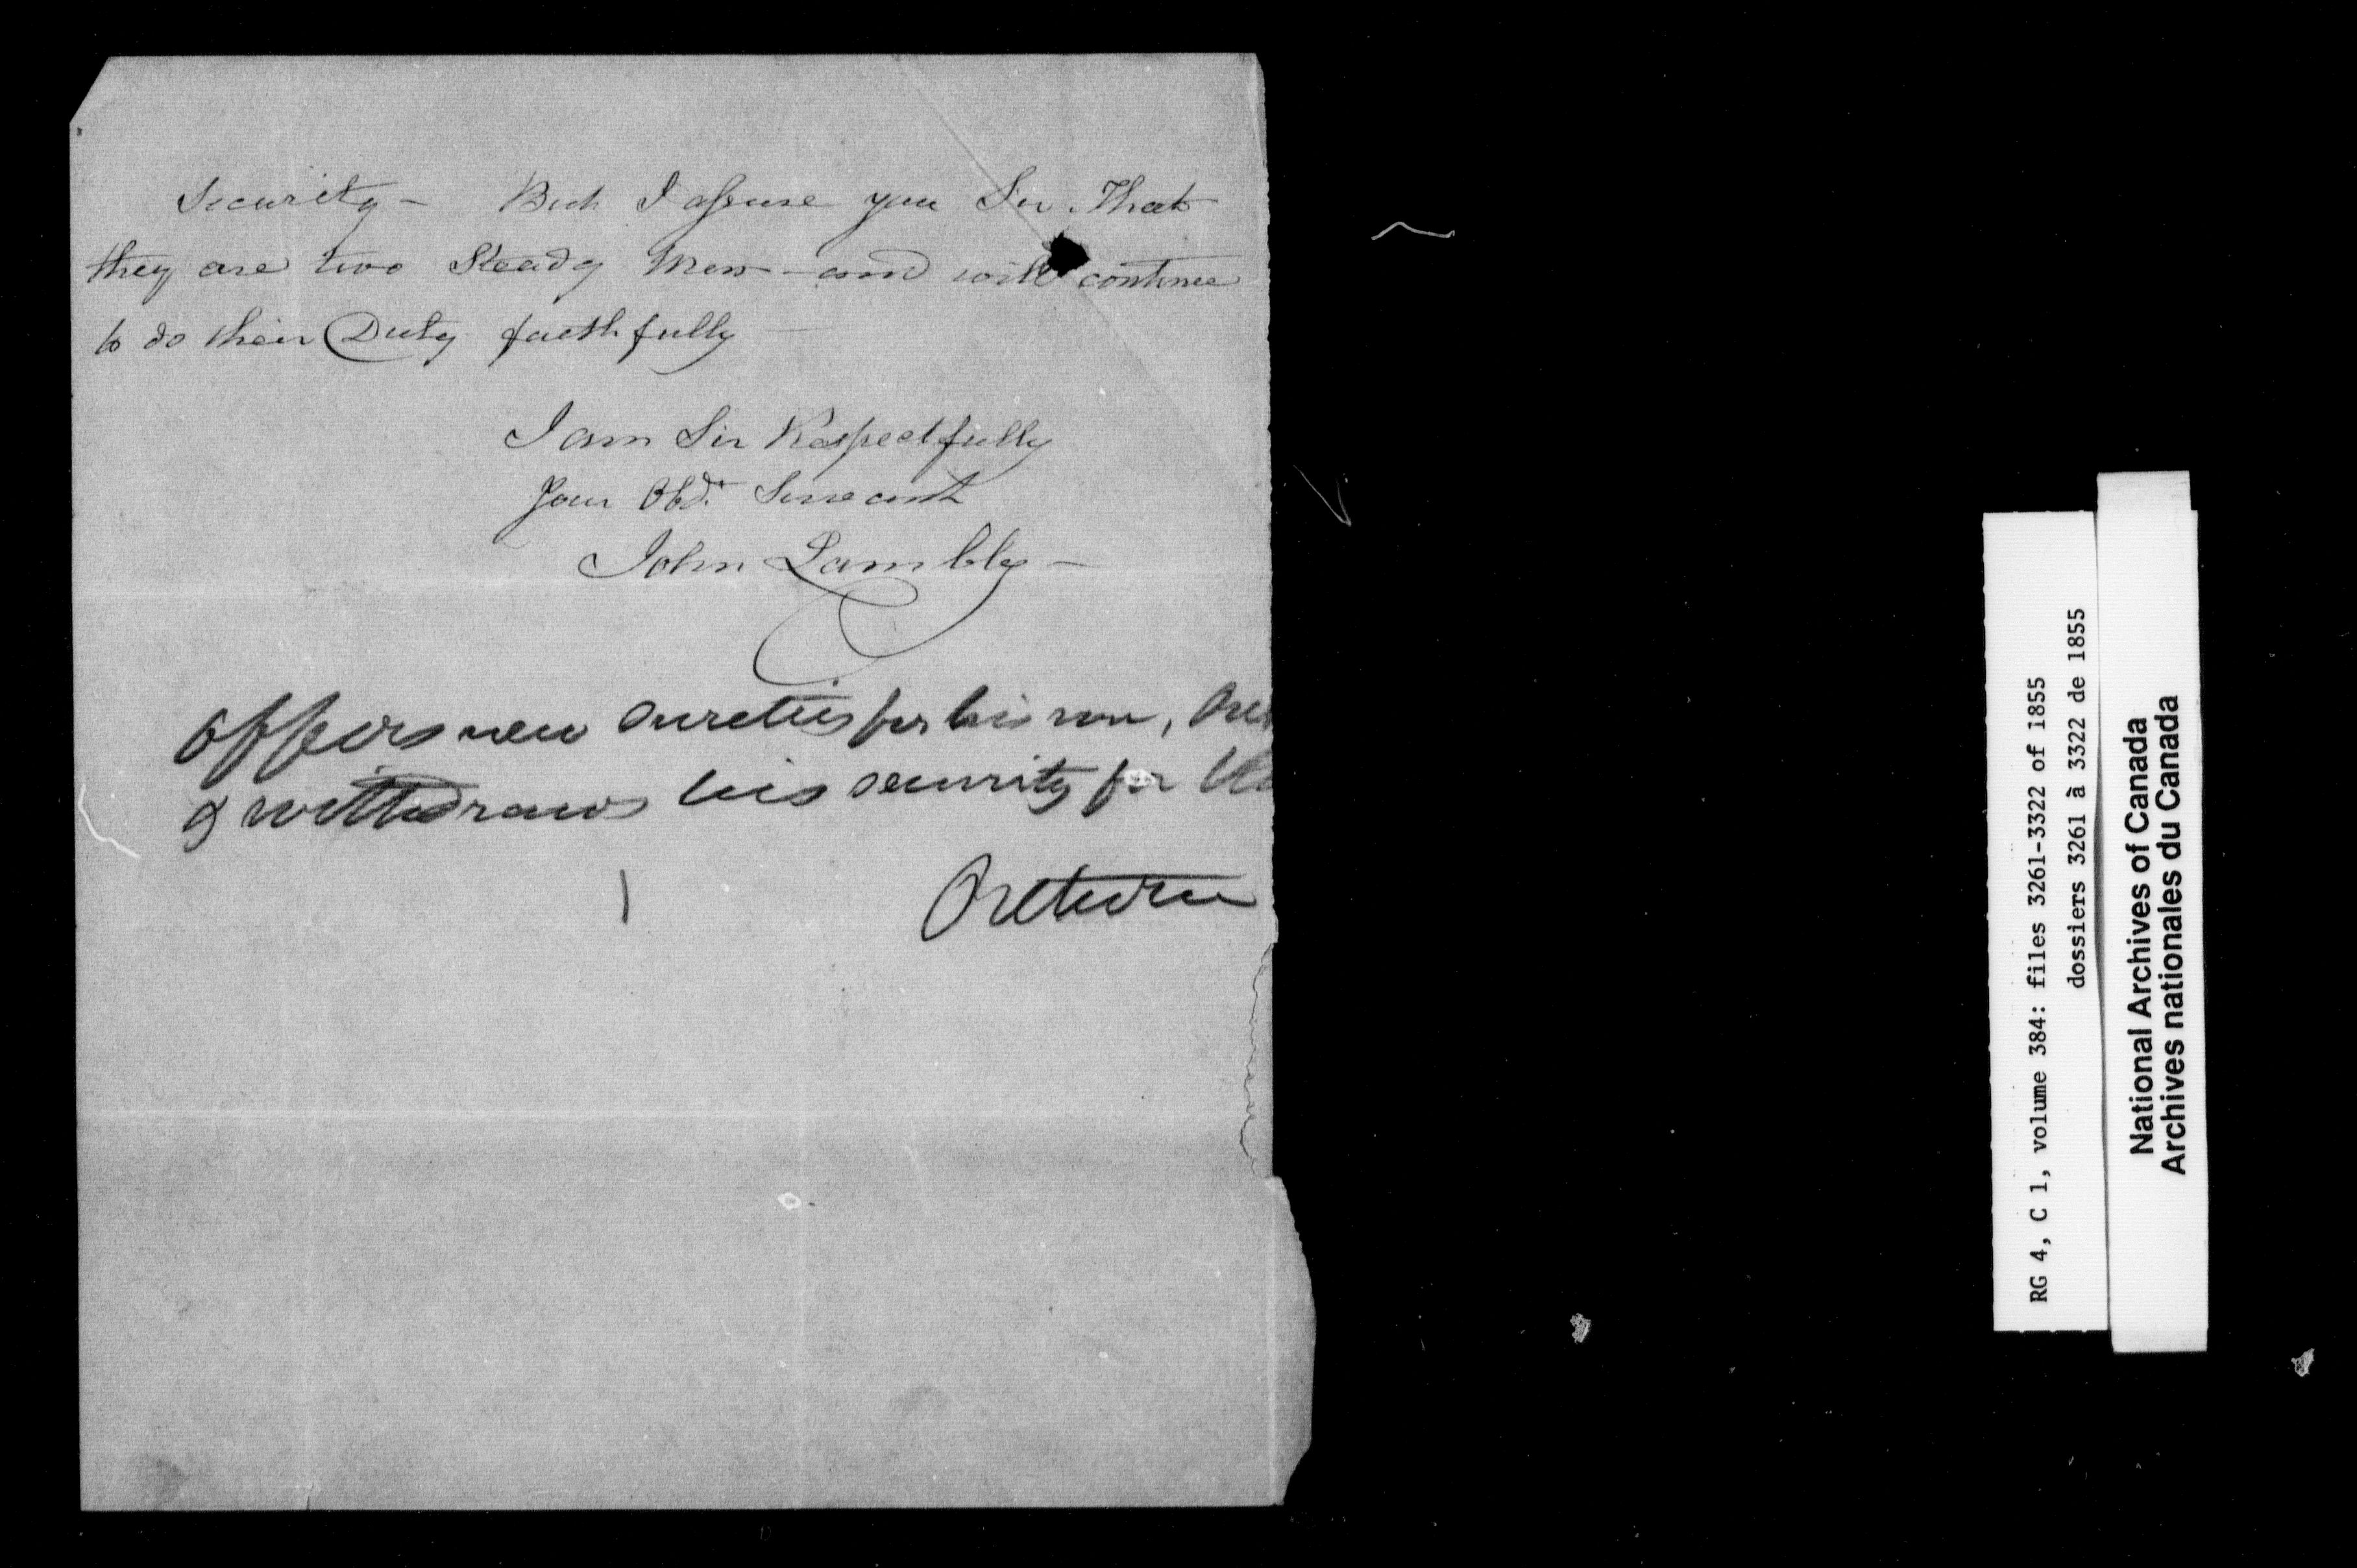 Security - But I assure you Sir. That
they are two Steady Men - and will continue
to do their Duty faithfully
I am Sir Respectfully
Your Obdt. Servant
John Lambly -
Offers new sureties for his son,
& withdraws his security for
RG 4, C 1, volume 384: files 3261-3322 of 1855
dossiers 3261 à 3322 de 1855
National Archives of Canada
Archives nationales du Canada